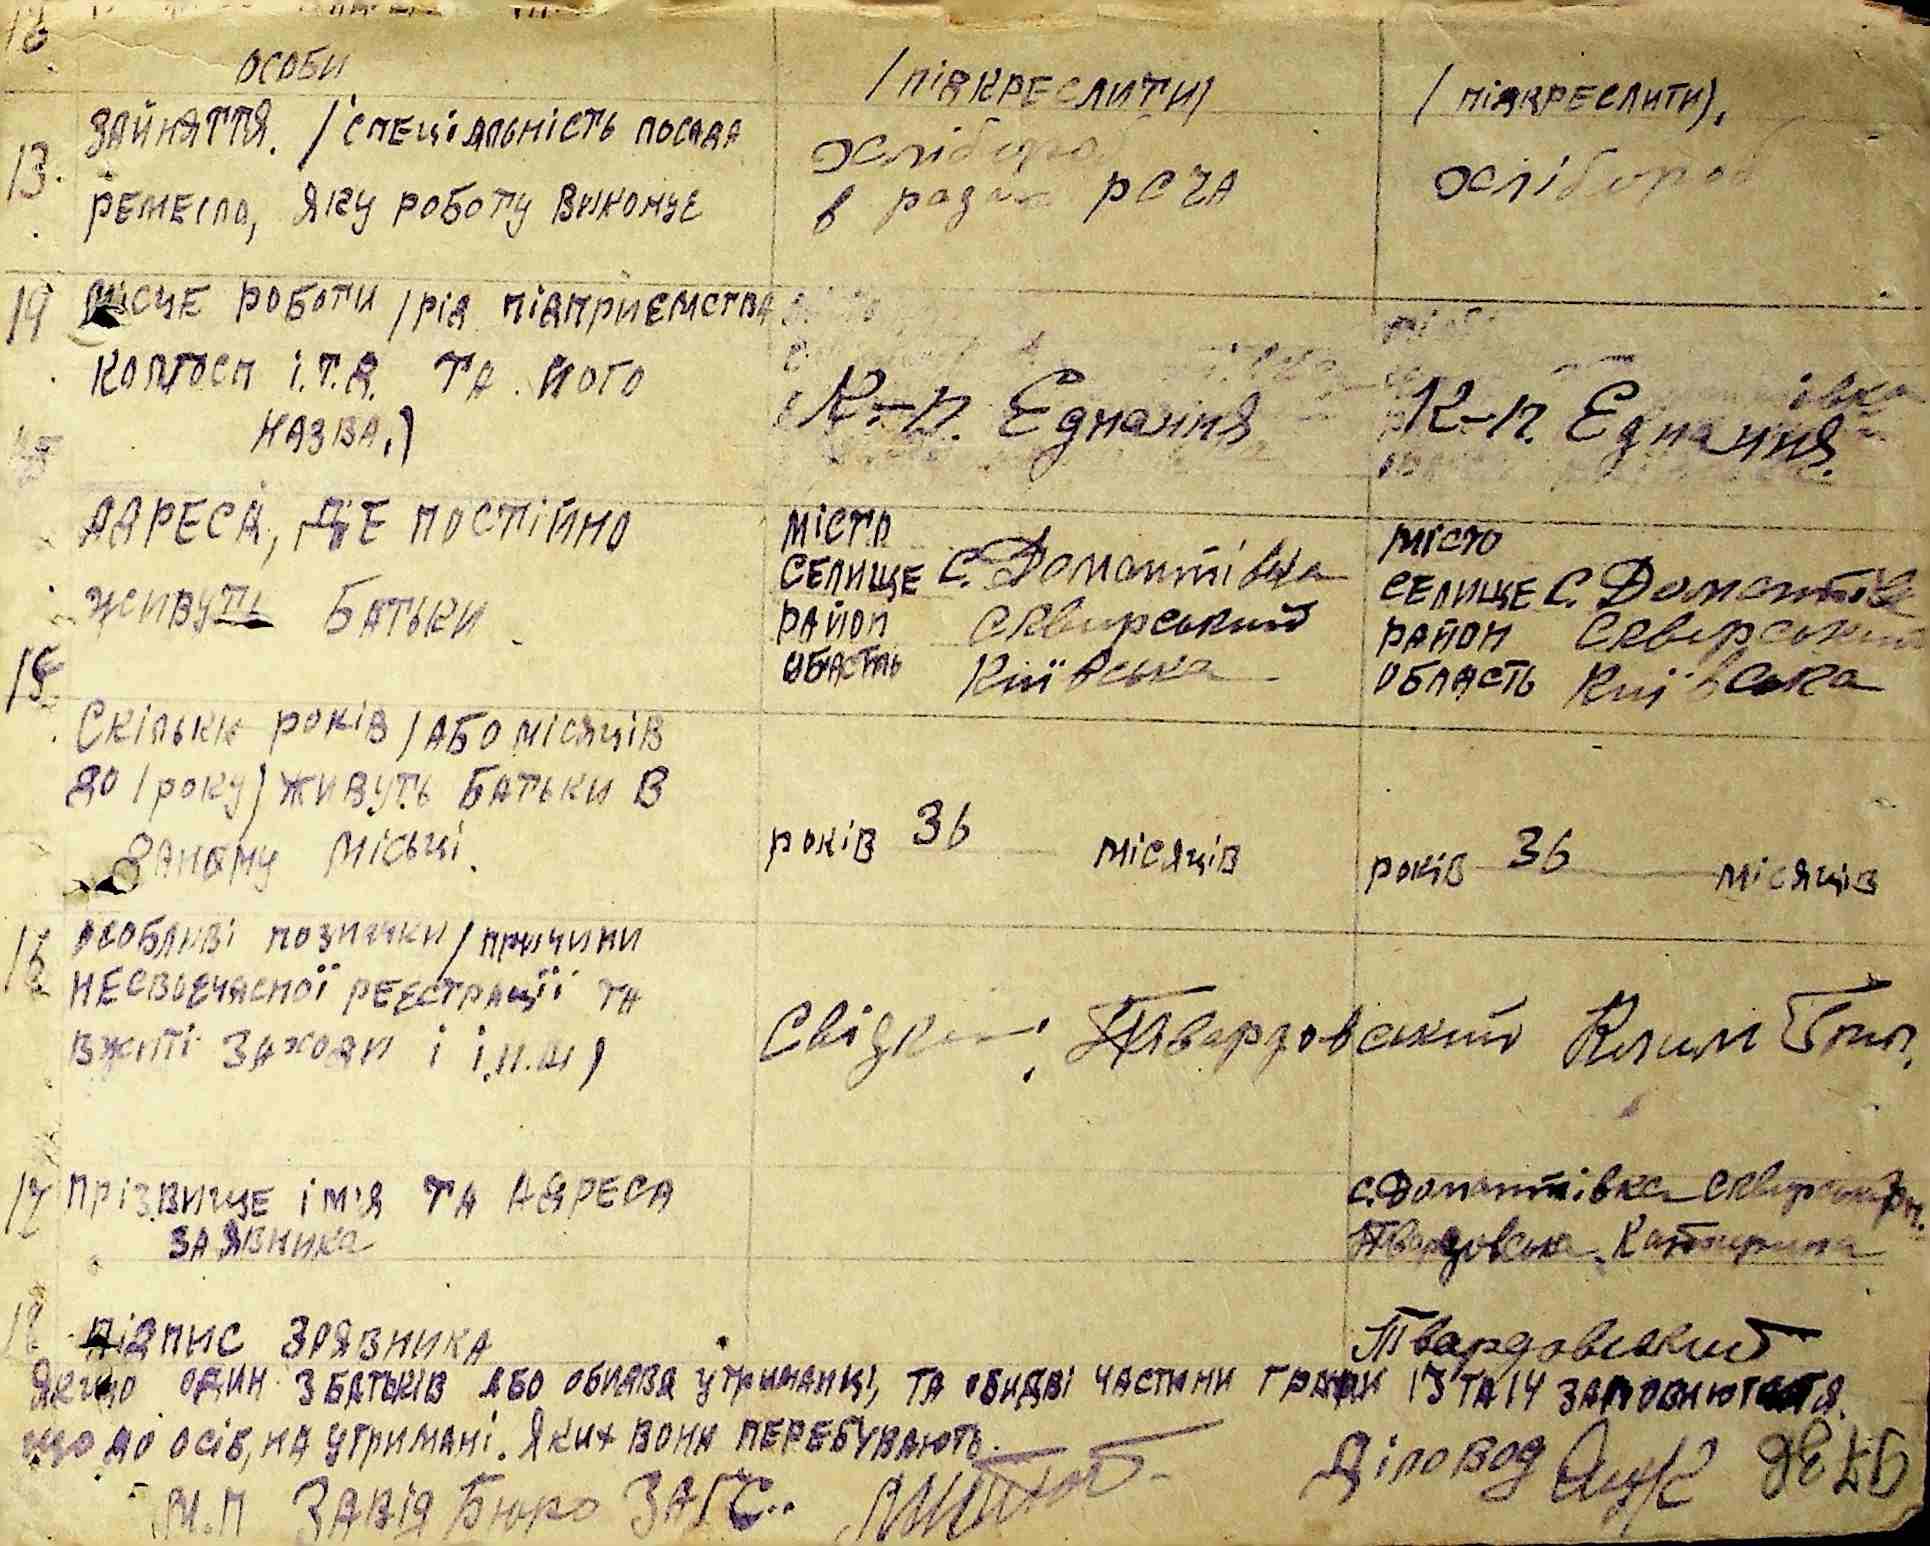 особи /підкреслити/ /підкреслити/.
13. зайняття. /спеціальність посада хлібороб хлібороб
ремесло, яку роботу виконує в рядах РСЧА
14 місце роботи /рід підприємства
колгосп і.т.д. та його К-п. Еднання К-п. Еднання.
назва.)
адреса, де постійно місто місто
живуть батьки селище с. Домантівка селище с. Домантівка
район Сквирський район Сквирський
15 область Київська область Київська
Скільки років /або місяців
до /року/ живуть батьки в
даному місьці. років 36 місяців років 36 місяців
16 особливі позначки /причини
несвоєчасної реєстрації та
вжиті заходи і і.н.ш) Свідки: Твардовський Клим
17 прізвище ім'я та адреса с. Домантівка Сквирськ. рн.
заявника Твардовська Катирина
18 підпис заявника Твардовський
Якщо один з батьків або обидва утриманці, та обидві частини графи 13 та 14 заповнюются.
що до осіб, на утримані. яких вони перебувають.
М.П Завід Бюро ЗАГС.. Діловод